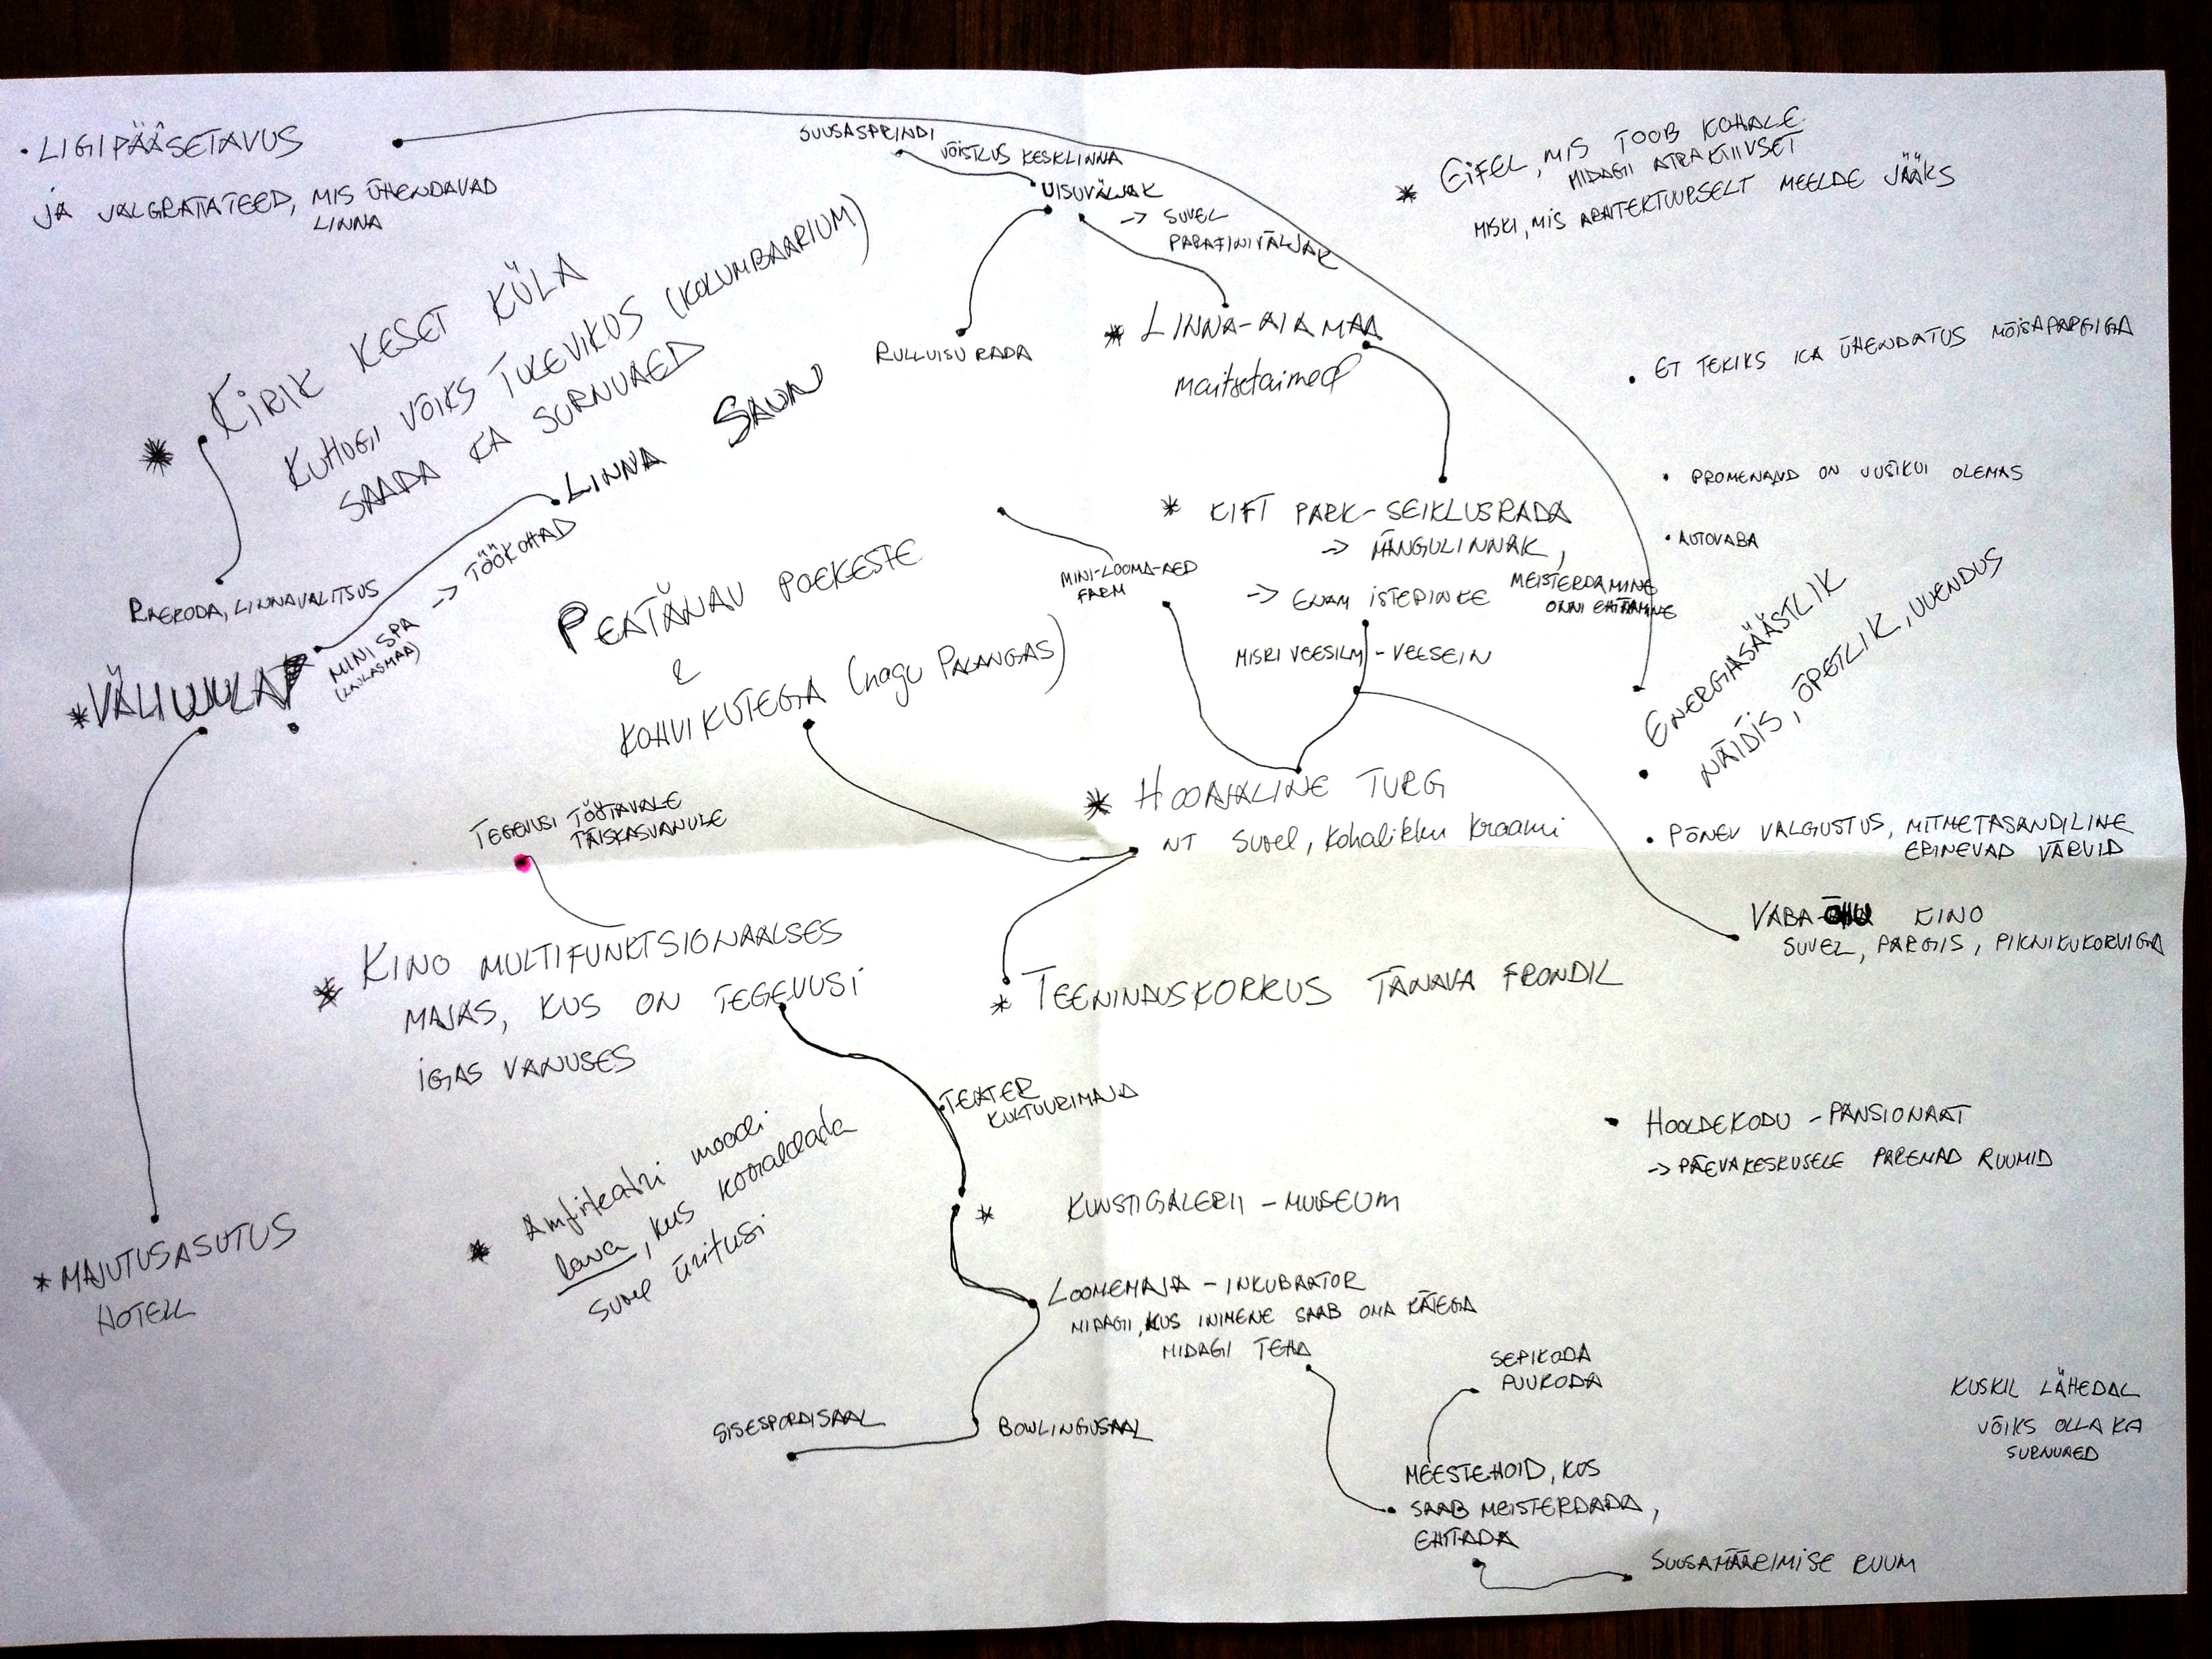 • LIGIPÄÄSETAVUS
JA JALGRATATEED, MIS ÜHENDAVAD
LINNA
SUUSASPRINDI
VÕISTLUS KESKLINNA
UISUVÄLJAK
-> SUVEL
PARAFINIVÄLJAK
RULLUISU RADA
* EIFEL, MIS TOOB KOHALE
MIDAGI ATRAKTIIVSET
MISKI, MIS ARHITEKTUURSELT MEELDE JÄÄKS
* KIRIK KESET KÜLA
KUHUGI VÕIKS TULEVIKUS (KOLUMBAARIUM)
SAADA KA SURNUAED
RAEKODA, LINNAVALITSUS
LINNA SAUN
* VÄLIUJULA
MINI SPA -> TÖÖKOHAD
(LAULASMAA)
* LINNA-AIAMAA
Maitsetaimed
• ET TEKIKS KA ÜHENDATUS MÕISAPARGIGA
• PROMENAAD ON JUSTKUI OLEMAS
• AUTOVABA
* KIFT PARK - SEIKLUSRADA
-> MÄNGULINNAK,
-> ENAM ISTEPINKE
MEISTERDAMINE
ONNI EHITAMINE
MISKI VEESILM - VEESEIN
MINI-LOOMA-AED
FARM
PEATÄNAV POEKESTE
&
KOHVIKUTEGA (nagu PALANGAS)
• ENERGIASÄÄSTLIK
NÄIDIS, ÕPETLIK, UUENDUS
* HOOAJALINE TURG
NT Suvel, kohalikku kraami
• PÕNEV VALGUSTUS, MITMETASANDILINE
ERINEVAD VÄRVID
VABA-ÕHU KINO
SUVEL, PARGIS, PIKNIKUKORVIGA
TEGEVUSI TÖÖTAVALE
TÄISKASVANULE
* KINO MULTIFUNKTSIONAALSES
MAJAS, KUS ON TEGEVUSI
IGAS VANUSES
* TEENINDUSKORRUS TÄNAVA FRONDIL
TEATER
KULTUURIMAJA
* Amfiteatri moodi
lava, kus korraldada
suvel üritusi
• HOOLDEKODU - PANSIONAAT
-> PÄEVAKESKUSELE PAREMAD RUUMID
* KUNSTIGALERII - MUUSEUM
* MAJUTUSASUTUS
HOTELL
LOOMEMAJA - INKUBAATOR
MIDAGI, KUS INIMENE SAAB OMA KÄTEGA
MIDAGI TEHA
SISESPORDISAAL
BOWLINGUSAAL
SEPIKODA
PUUKODA
MEESTEHOID, KUS
SAAB MEISTERDADA,
EHITADA
SUUSAMÄÄRIMISE RUUM
KUSKIL LÄHEDAL
VÕIKS OLLA KA
SURNUAED